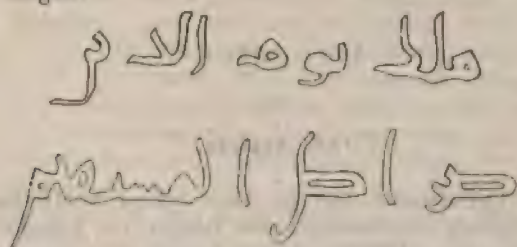 ملك يوم الدين
صراط المستقيم